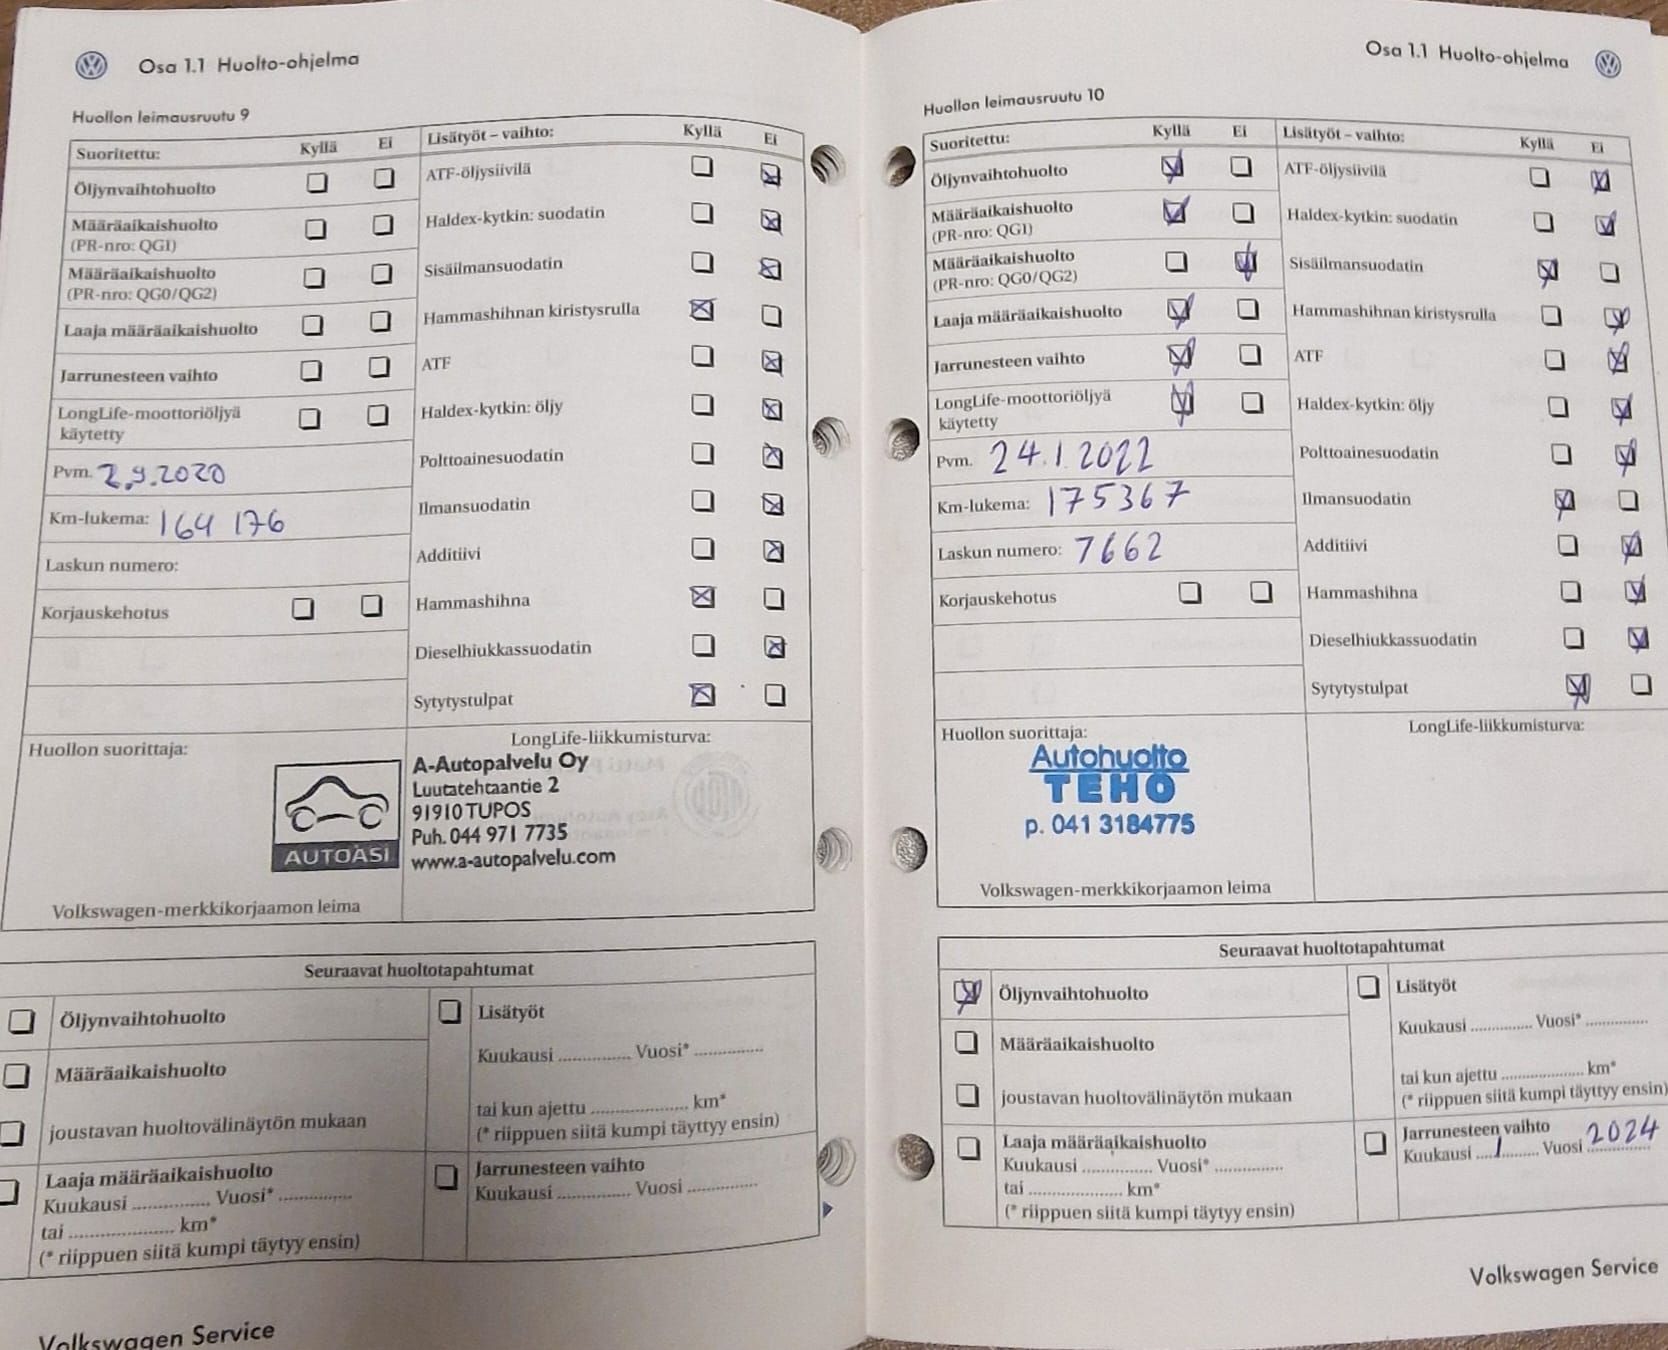 Osa 1.1 Huolto-ohjelma
Huollon leimausruutu 9
Suoritettu: Kyllä Ei
Öljynvaihtohuolto
Määräaikaishuolto
(PR-nro: QG1)
Määräaikaishuolto
(PR-nro: QG0/QG2)
Laaja määräaikaishuolto
Jarrunesteen vaihto
LongLife-moottoriöljyä
käytetty
Pvm. 2.9.2020
Km-lukema: 164 176
Laskun numero:
Korjauskehotus
Lisätyöt – vaihto: Kyllä Ei
ATF-öljysiivilä
Haldex-kytkin: suodatin
Sisäilmansuodatin
Hammashihnan kiristysrulla
ATF
Haldex-kytkin: öljy
Polttoainesuodatin
Ilmansuodatin
Additiivi
Hammashihna
Dieselhiukkassuodatin
Sytytystulpat
Huollon suorittaja:
LongLife-liikkumisturva:
AUTOASI
A-Autopalvelu Oy
Luutatehtaantie 2
91910 TUPOS
Puh. 044 971 7735
www.a-autopalvelu.com
Volkswagen-merkkikorjaamon leima
Seuraavat huoltotapahtumat
Öljynvaihtohuolto
Määräaikaishuolto
joustavan huoltovälinäytön mukaan
Laaja määräaikaishuolto
Kuukausi .............. Vuosi* .............
tai ................... km*
(* riippuen siitä kumpi täytyy ensin)
Lisätyöt
Kuukausi .............. Vuosi* .............
tai kun ajettu ................... km*
(* riippuen siitä kumpi täyttyy ensin)
Jarrunesteen vaihto
Kuukausi .............. Vuosi .............
Volkswagen Service
Osa 1.1 Huolto-ohjelma
Huollon leimausruutu 10
Suoritettu: Kyllä Ei
Öljynvaihtohuolto
Määräaikaishuolto
(PR-nro: QG1)
Määräaikaishuolto
(PR-nro: QG0/QG2)
Laaja määräaikaishuolto
Jarrunesteen vaihto
LongLife-moottoriöljyä
käytetty
Pvm. 24.1.2022
Km-lukema: 175367
Laskun numero: 7662
Korjauskehotus
Lisätyöt – vaihto: Kyllä Ei
ATF-öljysiivilä
Haldex-kytkin: suodatin
Sisäilmansuodatin
Hammashihnan kiristysrulla
ATF
Haldex-kytkin: öljy
Polttoainesuodatin
Ilmansuodatin
Additiivi
Hammashihna
Dieselhiukkassuodatin
Sytytystulpat
Huollon suorittaja:
LongLife-liikkumisturva:
Autohuolto
TEHO
p. 041 3184775
Volkswagen-merkkikorjaamon leima
Seuraavat huoltotapahtumat
Öljynvaihtohuolto
Määräaikaishuolto
joustavan huoltovälinäytön mukaan
Laaja määräaikaishuolto
Kuukausi .............. Vuosi* .............
tai ................... km*
(* riippuen siitä kumpi täytyy ensin)
Lisätyöt
Kuukausi ............ Vuosi* ............
tai kun ajettu ................ km*
(* riippuen siitä kumpi täyttyy ensin)
Jarrunesteen vaihto
Kuukausi ....1....... Vuosi 2024
Volkswagen Service